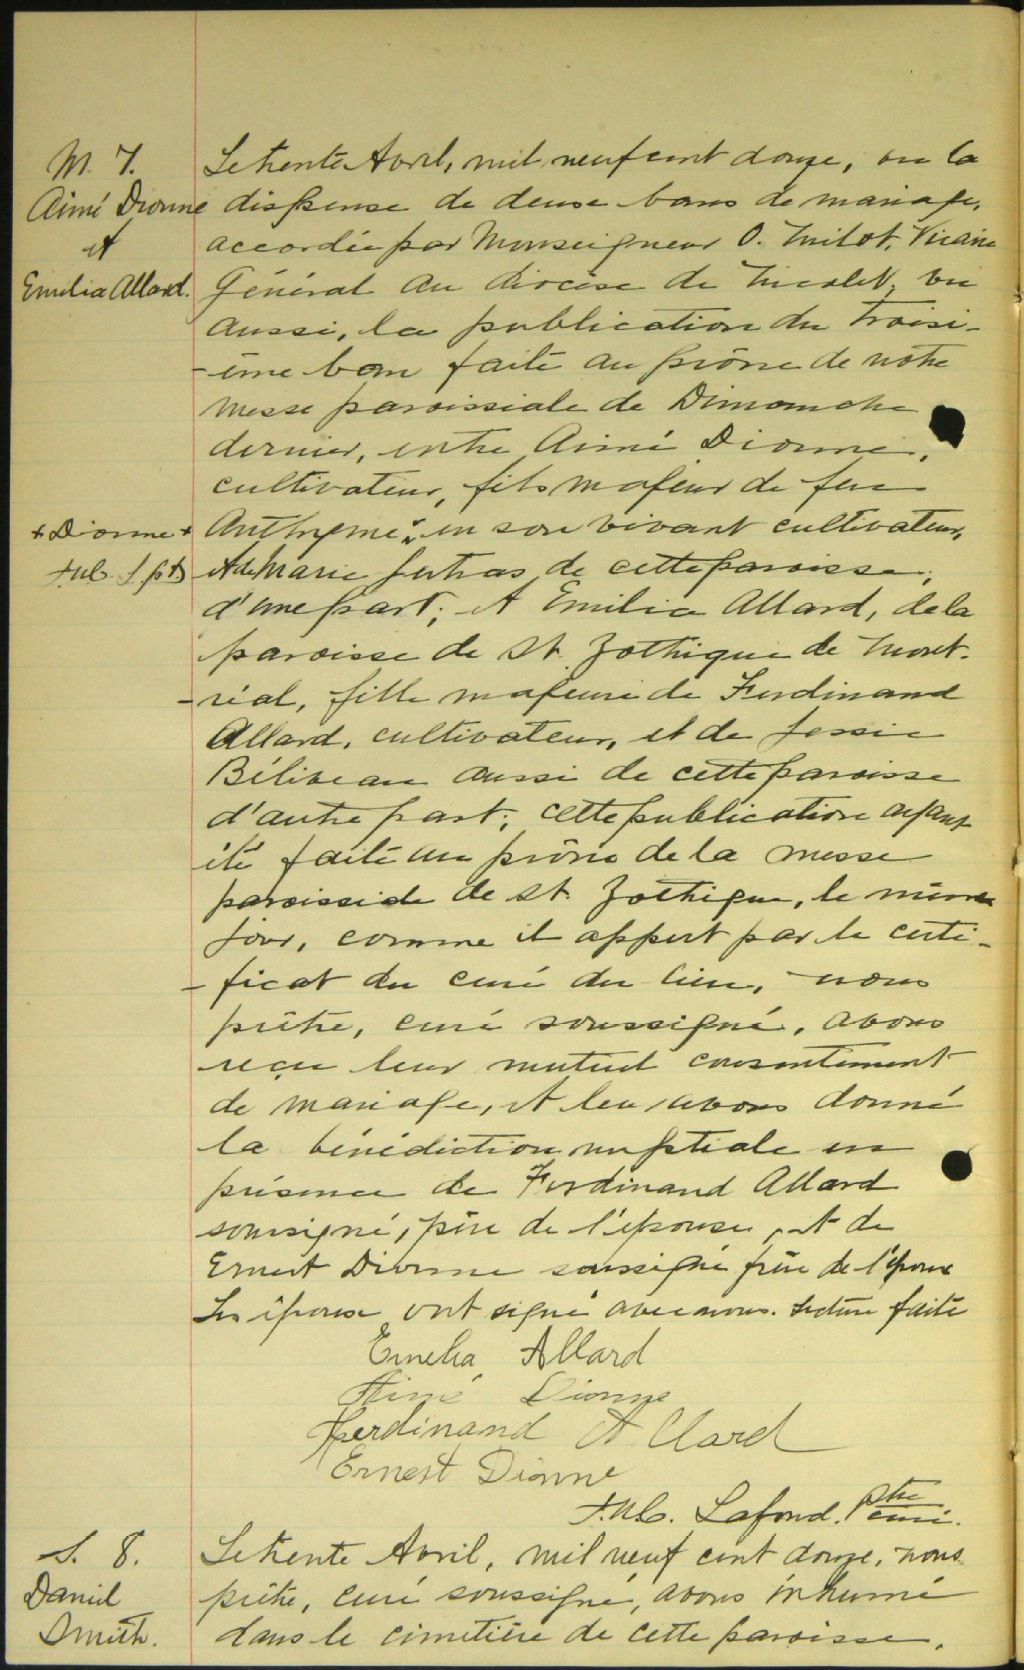 M. 7.
Aimé Dionne
et
Emilia Allard.
Le trente Avril, mil neuf cent douze, vu la
dispense de deux bans de mariage,
accordée par Monseigneur O. Milot, Vicaire
Général du diocèse de Nicolet; vu
aussi, la publication du troisi-
-ème ban faite au prône de notre
messe paroissiale de Dimanche
dernier, entre Aimé Dionne,
cultivateur, fils majeur de feu
+ Dionne +
Anthyme + en son vivant cultivateur,
et de Marie Jutras de cette paroisse,
d'une part; et Emilia Allard, de la
paroisse de St. Zothique de Mont-
-réal, fille majeure de Ferdinand
Allard, cultivateur, et de Jessie
Béliveau aussi de cette paroisse
d'autre part; cette publication ayant
été faite au prône de la messe
paroissiale de St. Zothique, le même
jour, comme il appert par le certi-
-ficat du curé du lieu, nous
prêtre, curé soussigné, avons
reçu leur mutuel consentement
de mariage, et leur avons donné
la bénédiction nuptiale en
présence de Ferdinand Allard
soussigné, père de l'épouse, et de
Ernest Dionne soussigné frère de l'époux
Les époux ont signé avec nous. Lecture faite
Emelia Allard
Aimé Dionne
Ferdinand Allard
Ernest Dionne
Lafond. Ptre
curé.
S. 8.
Daniel
Smith.
Le trente Avril, mil neuf cent douze, nous
prêtre, curé soussigné, avons inhumé
dans le cimetière de cette paroisse,